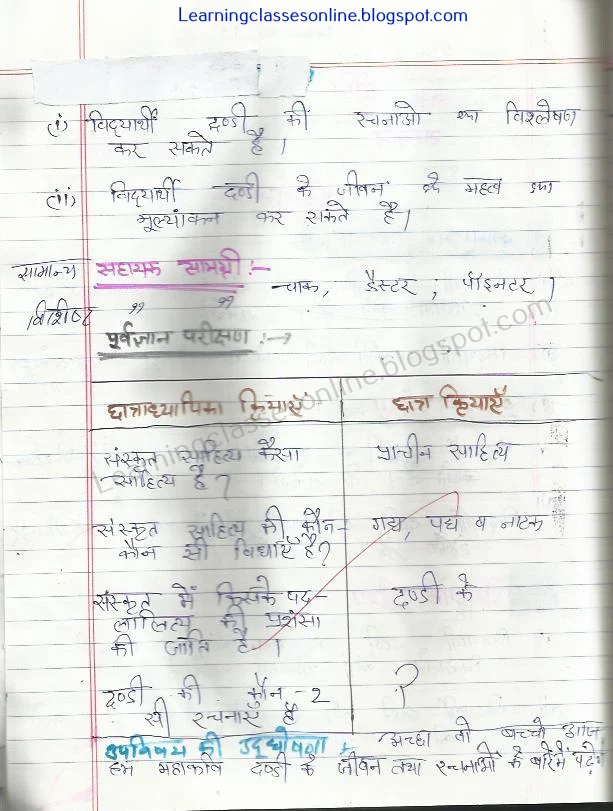 Learningclassesonline.blogspot.com
(i) विद्यार्थी दण्डी की रचनाओ का विश्लेषण
कर सकते है ।
(ii) विद्यार्थी दण्डी के जीवन के महत्व का
मूल्यांकन कर सकते है।
सामान्य सहायक सामग्री :-
चाक, डैस्टर, पॉइनटर ।
विशिष्ट ,, ,,
पूर्वज्ञान परीक्षण :-→
छात्राध्यापिका क्रियाएँ छात्र क्रियाएँ
संस्कृत साहित्य कैसा प्राचीन साहित्य
साहित्य है ?
संस्कृत साहित्य की कौन- गद्य, पद्य व नाटक
कौन सी विधाएँ है?
संस्कृत में किसके पद- दण्डी के
लालित्य की प्रशंसा
की जाति है ।
दण्डी की कौन-2 ?
सी रचनाएँ है
उपविषय की उद्घोषणा :- अच्छा तो बच्चो आज
हम महाकवि दण्डी के जीवन तथा रचनाओं के बारेमें पढ़ेगे
Learningclassesonline.blogspot.com